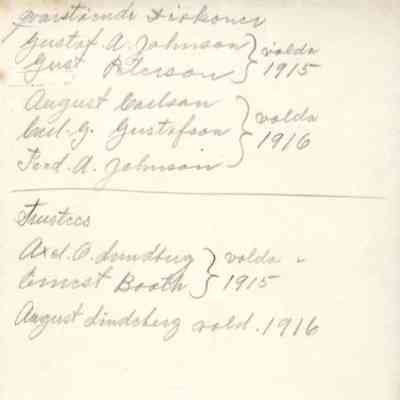 qvarstående Diakoner
Gustaf A. Johnson } valda
Gust Peterson } 1915
August Carlson
Carl. G. Gustafson } valda 1916
Ferd. A. Johnson
Trustees
Axel. O. Lundberg } valda
Ernest Booth } 1915
August Lindeberg vald. 1916